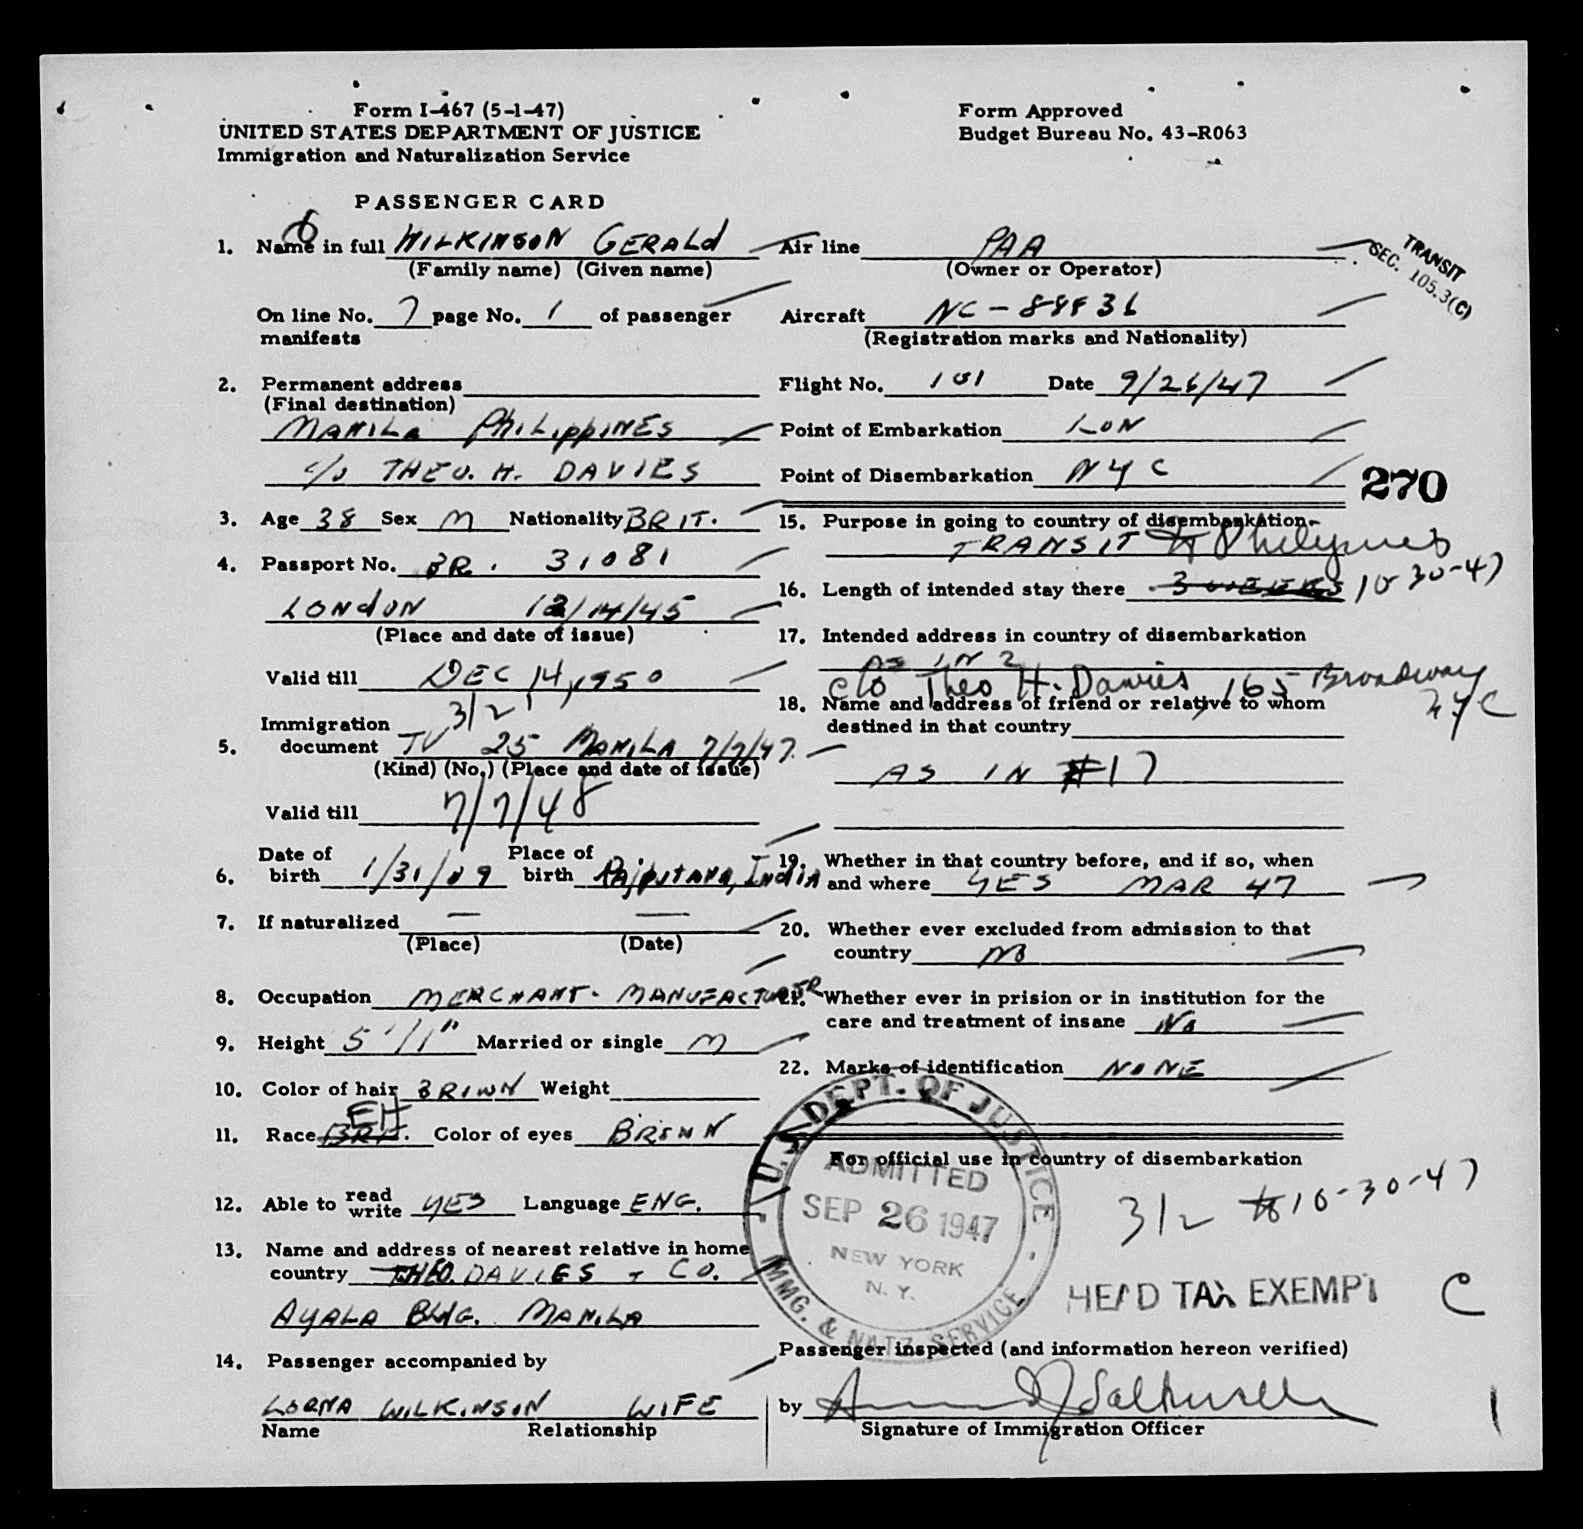 Form I-467 (5-1-47)
UNITED STATES DEPARTMENT OF JUSTICE
Immigration and Naturalization Service
Form Approved
Budget Bureau No. 43-R063
PASSENGER CARD
1. Name in full WILKINSON GERALD
(Family name) (Given name)
On line No. 7 page No. 1 of passenger
manifests
2. Permanent address
(Final destination)
MANILA PHILIPPINES
c/o THEO. H. DAVIES
3. Age 38 Sex M Nationality BRIT.
4. Passport No. BR. 31081
LONDON 12/14/45
(Place and date of issue)
Valid till DEC 14, 1950
3/2
Immigration
5. document TV 25 MANILA 7/7/47.
(Kind) (No.) (Place and date of issue)
Valid till 7/7/48
6. Date of birth 1/31/09 Place of birth Rajputana, INDIA
7. If naturalized — —
(Place) (Date)
8. Occupation MERCHANT - MANUFACTURER
9. Height 5' 11" Married or single M
10. Color of hair BROWN Weight
EH
11. Race BRIT. Color of eyes BROWN
12. Able to read write YES Language ENG.
13. Name and address of nearest relative in home
country THEO. DAVIES + CO.
AYALA BLDG. MANILA
14. Passenger accompanied by
LORNA WILKINSON WIFE
Name Relationship
Air line PAA
(Owner or Operator)
TRANSIT
SEC. 105.3(C)
Aircraft NC-88836
(Registration marks and Nationality)
Flight No. 101 Date 9/26/47
Point of Embarkation LON
Point of Disembarkation NYC
270
15. Purpose in going to country of disembarkation
TRANSIT to Philippines
16. Length of intended stay there 3 WEEKS 10-30-47
17. Intended address in country of disembarkation
AS IN 2
c/o Theo H. Davies, 165 Broadway
NYC
18. Name and address of friend or relative to whom
destined in that country
AS IN #17
19. Whether in that country before, and if so, when
and where YES MAR 47
20. Whether ever excluded from admission to that
country NO
21. Whether ever in prision or in institution for the
care and treatment of insane No
22. Marks of identification NONE
For official use in country of disembarkation
3/2 to 10-30-47
U.S. DEPT. OF JUSTICE
ADMITTED
SEP 26 1947
NEW YORK
N.Y.
IMMG. & NATZ. SERVICE
HEAD TAX EXEMPT C
Passenger inspected (and information hereon verified)
by
Signature of Immigration Officer